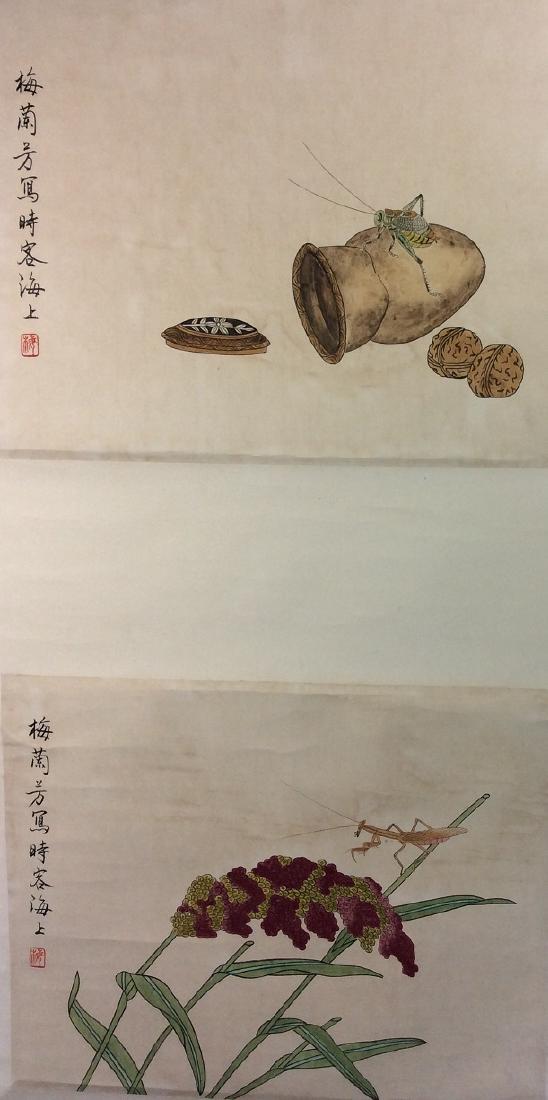 梅蘭芳寫時客海上
梅
梅蘭芳寫時客海上
梅